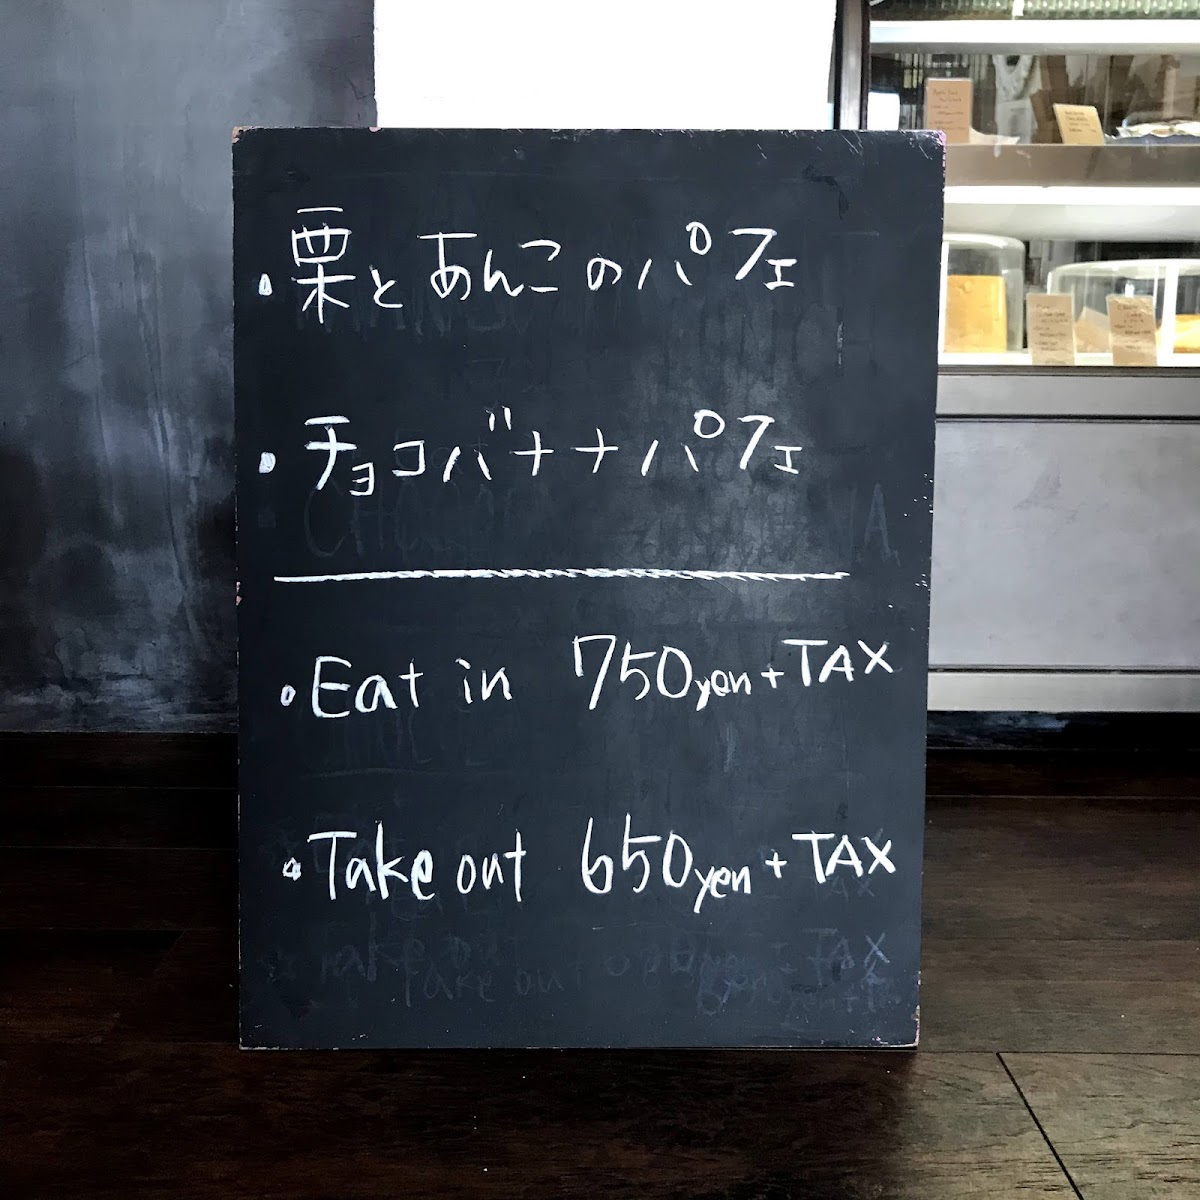 ・栗とあんこのパフェ
・チョコバナナパフェ
・Eat in 750yen + TAX
・Take out 650yen + TAX